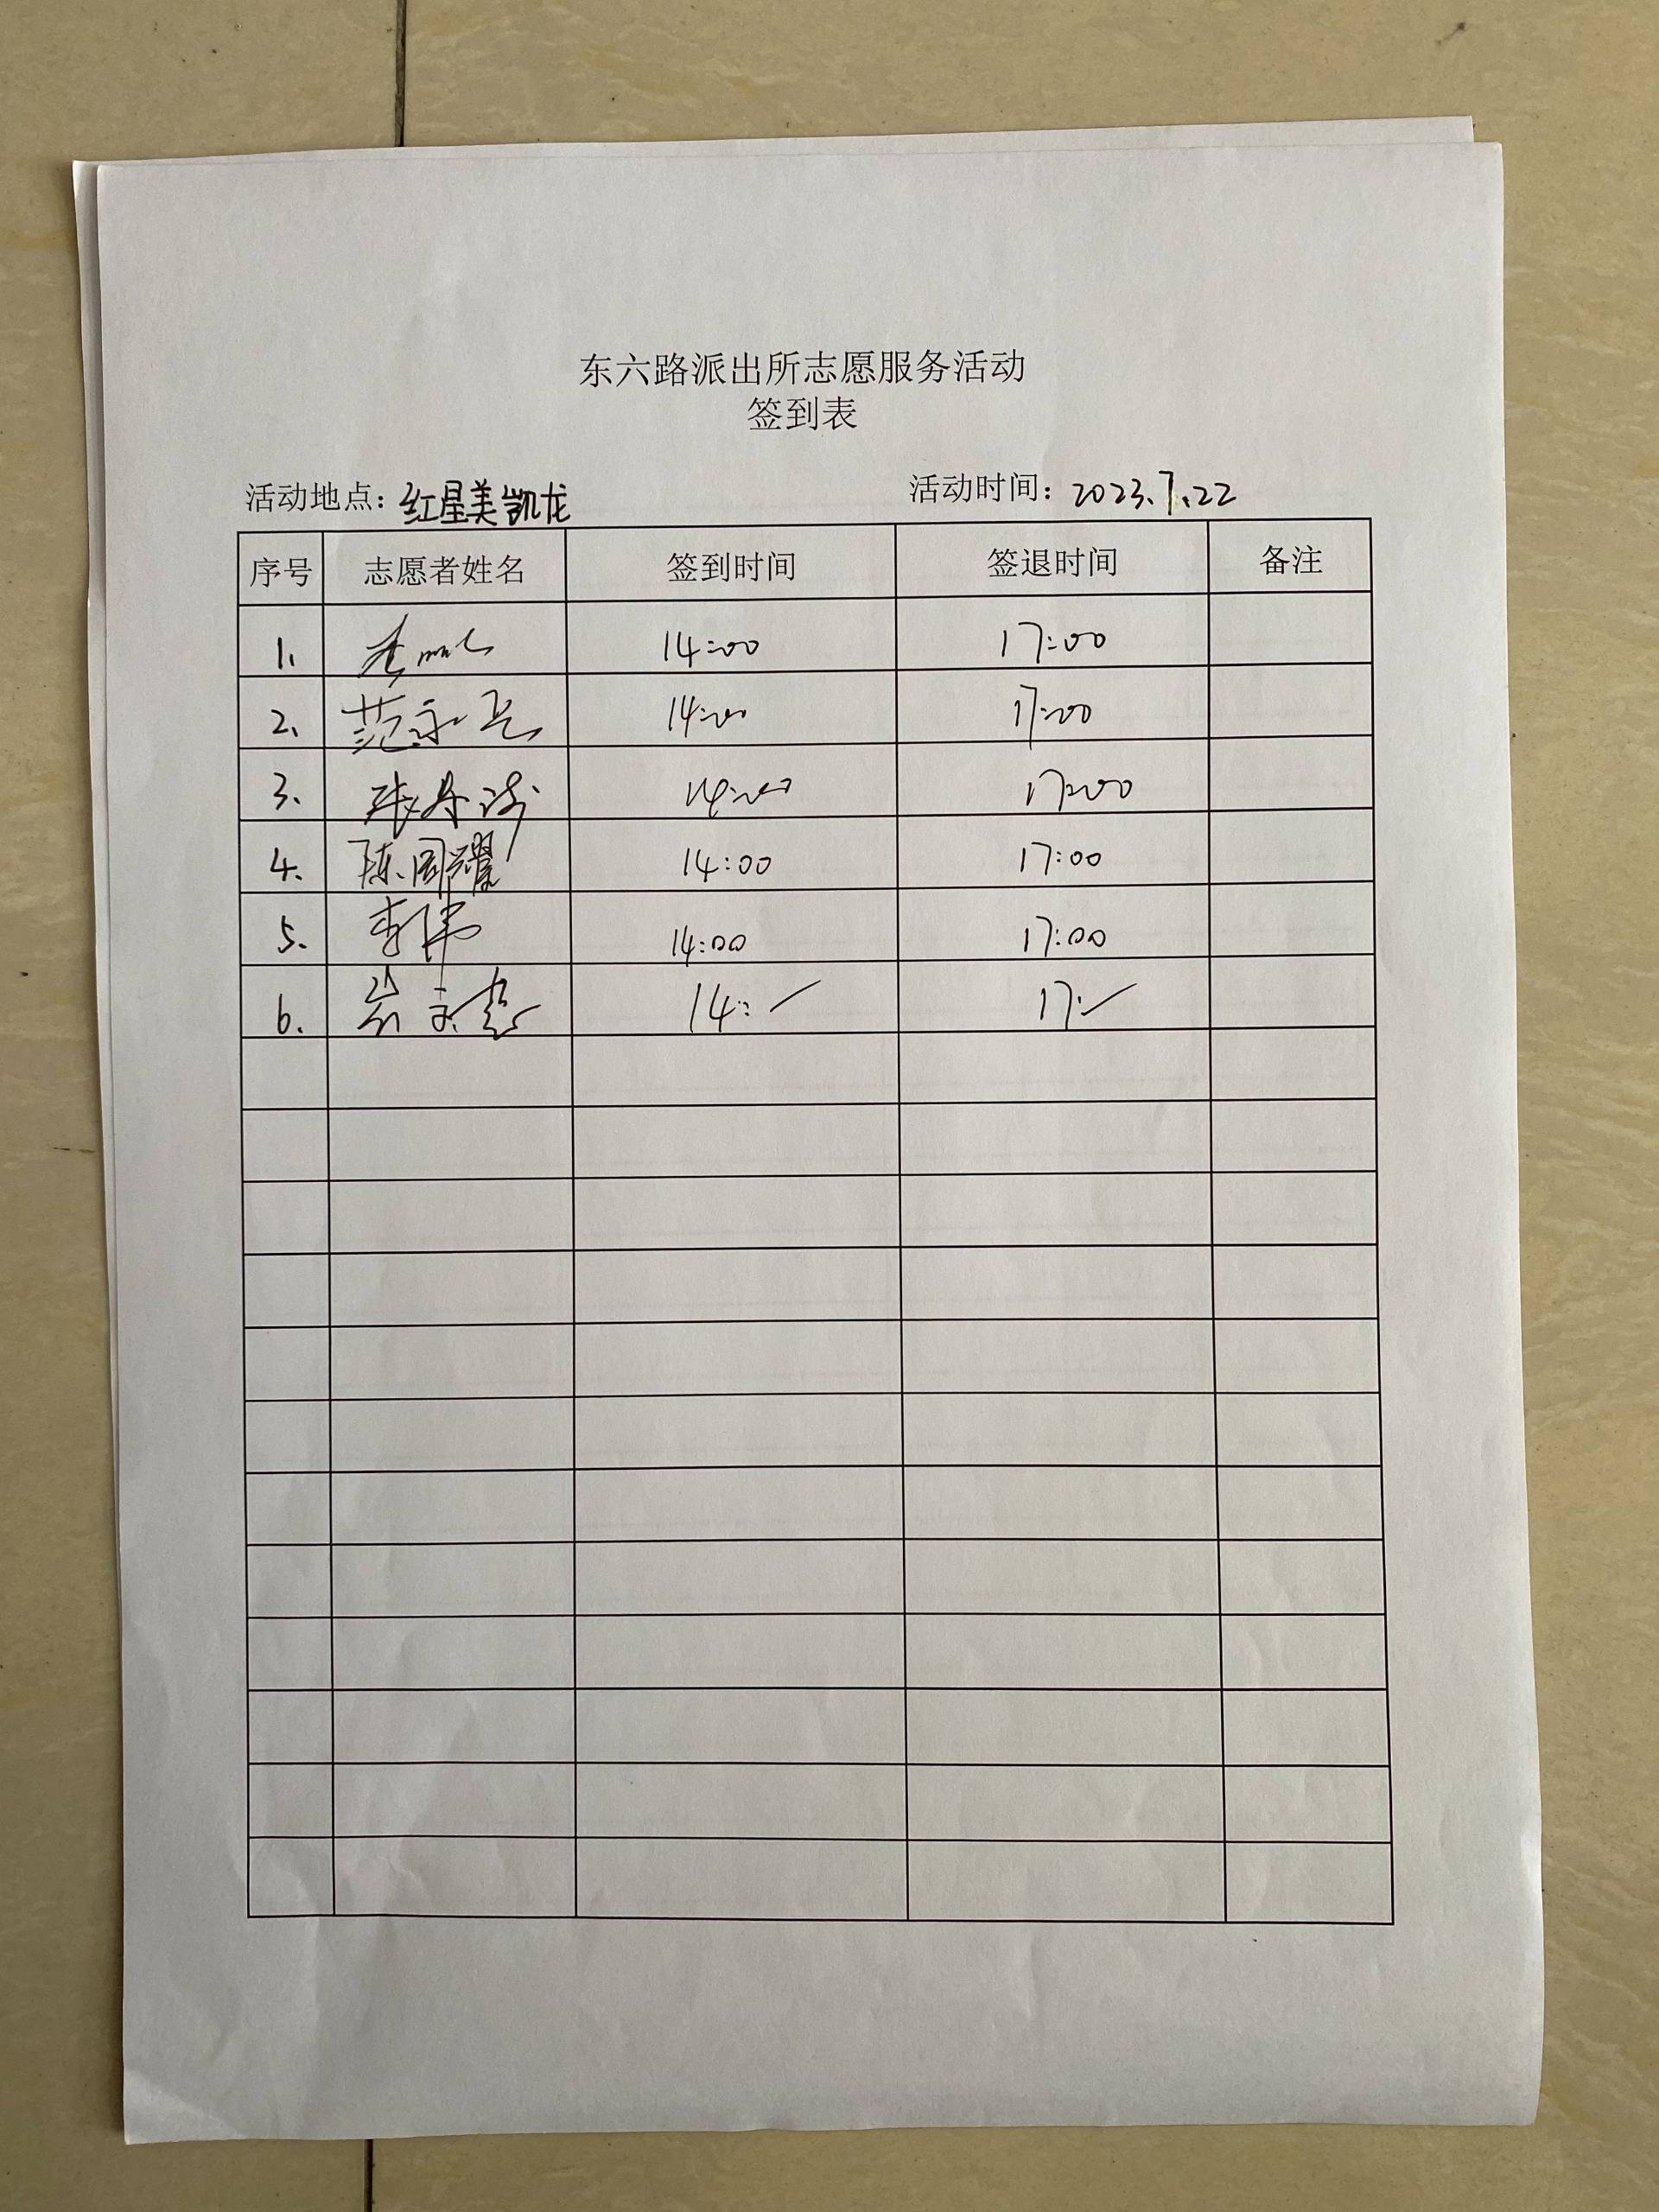 东六路派出所志愿服务活动
签到表
活动地点：红星美凯龙 活动时间：2023.7.22
序号 志愿者姓名 签到时间 签退时间 备注
1. 14:00 17:00
2. 范永 14:00 17:00
3. 张丹 14:00 17:00
4. 陈国耀 14:00 17:00
5. 李伟 14:00 17:00
6. 14: 17: